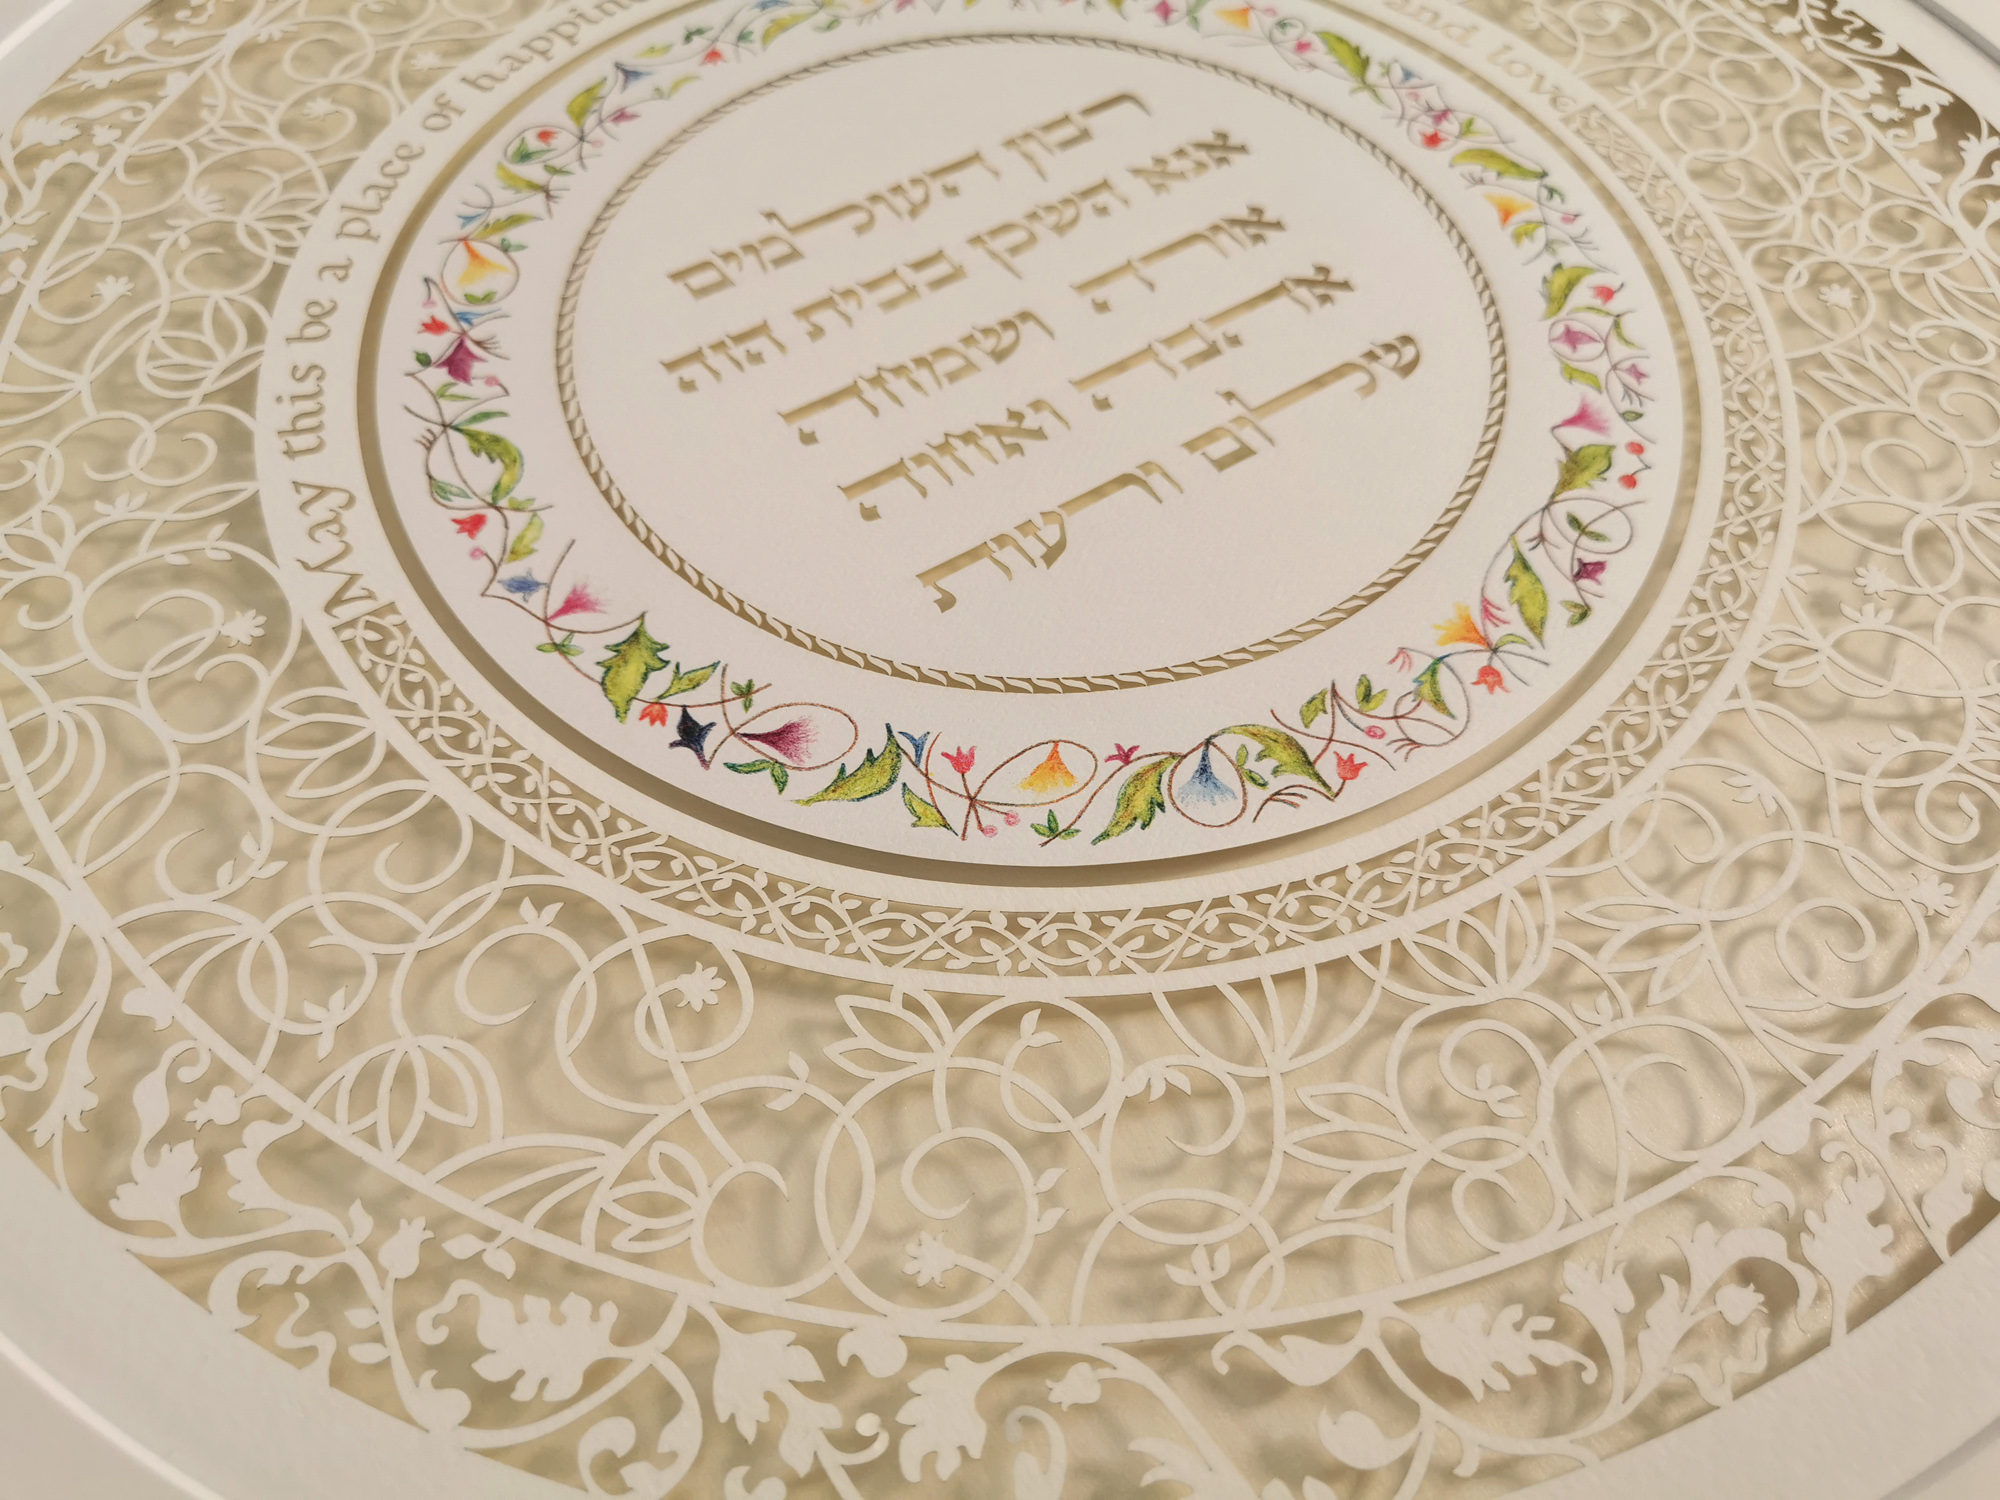 רבון העולמים
אנא השיכן בבית הזה
אורה ושמחה
אהבה ואחוה
שלום ורעות
May this be a place of
and love